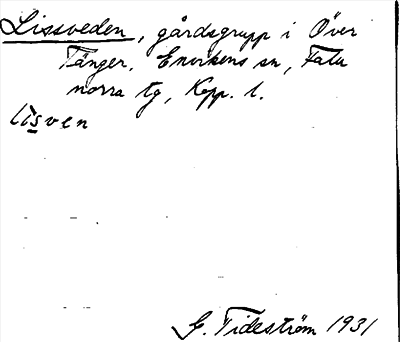 Lissveden, gårdsgrupp i Över
Tänger, Envikens sn, Falu
norra tg, Kopp. l.
lisven
G. Tideström 1931